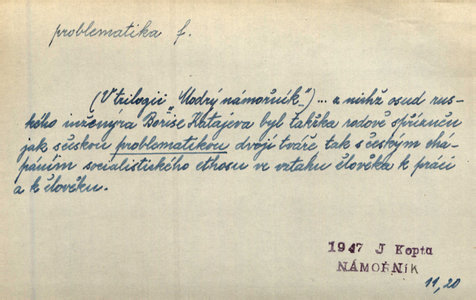 problematika f.
(V trilogii „Modrý námořník") ... z nichž osud rus-
kého inženýra Borise Katajeva byl takřka rodově spřízněn
jak s českou problematikou dvojí tváře tak s českým chá-
páním socialistického ethosu ve vztahu člověka k práci
a k člověku.
1947 J Kopta
NÁMOŘNÍK
11, 20